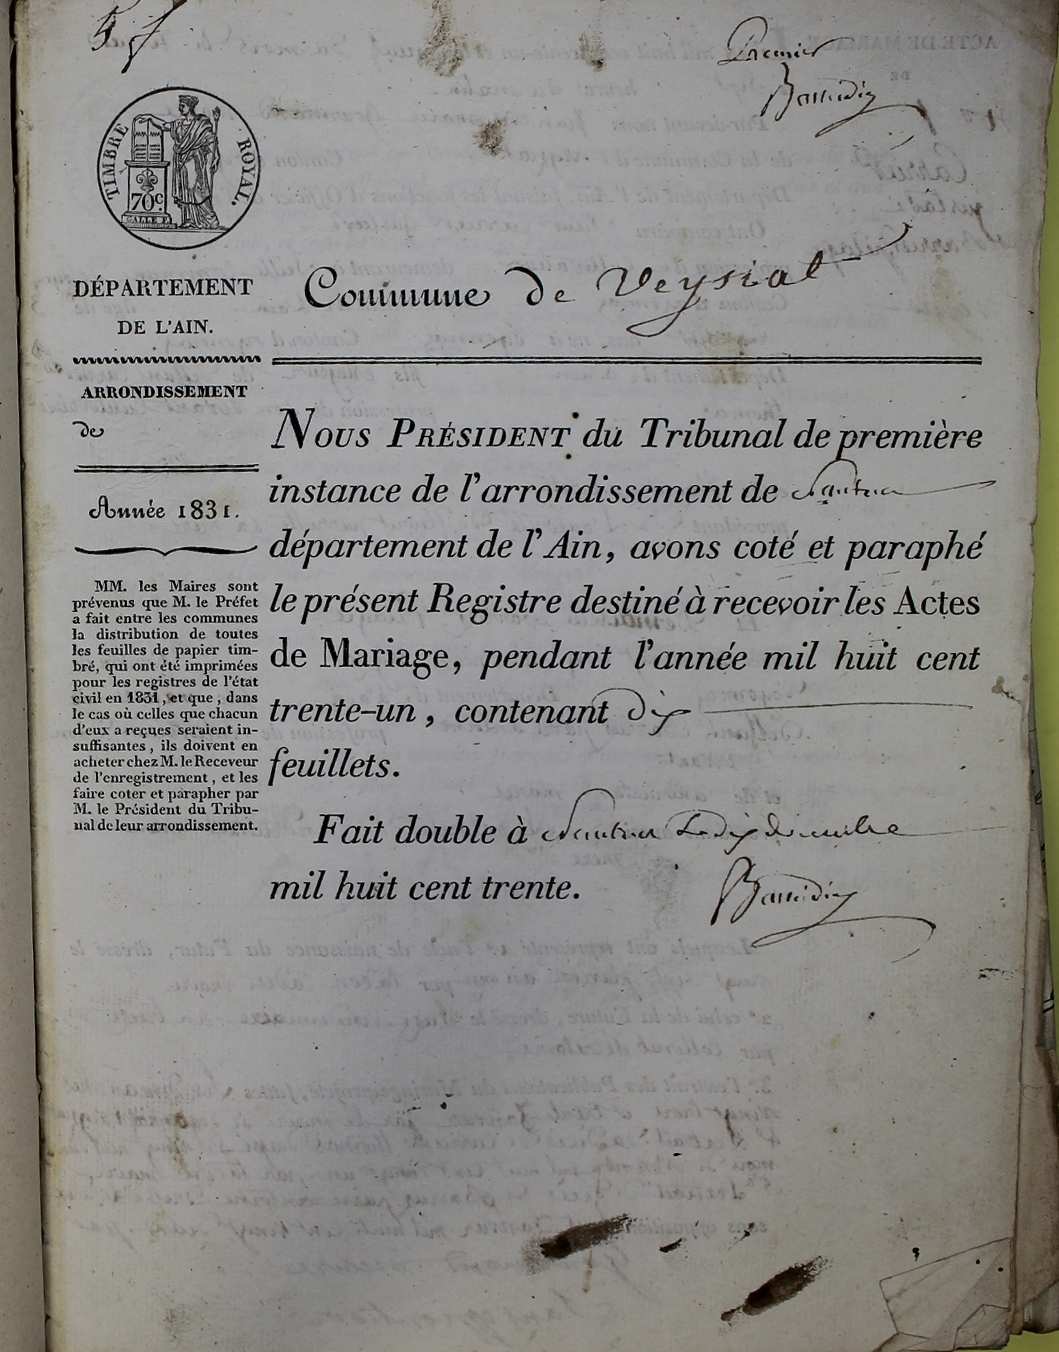 5 f
Premier
TIMBRE ROYAL.
70 c.
DÉPARTEMENT
DE L'AIN.
Commune de Veyziat
ARRONDISSEMENT
de
Année 1831.
MM. les Maires sont
prévenus que M. le Préfet
a fait entre les communes
la distribution de toutes
les feuilles de papier tim-
bré, qui ont été imprimées
pour les registres de l'état
civil en 1831, et que, dans
le cas où celles que chacun
d'eux a reçues seraient in-
suffisantes, ils doivent en
acheter chez M. le Receveur
de l'enregistrement, et les
faire coter et parapher par
M. le Président du Tribu-
nal de leur arrondissement.
NOUS PRÉSIDENT du Tribunal de première
instance de l'arrondissement de Nantua
département de l'Ain, avons coté et paraphé
le présent Registre destiné à recevoir les Actes
de Mariage, pendant l'année mil huit cent
trente-un, contenant dix
feuillets.
Fait double à Nantua le dix décembre
mil huit cent trente.